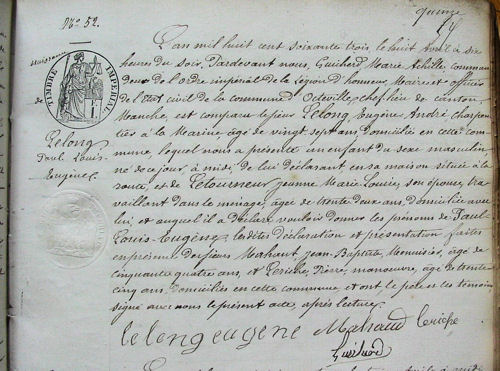 quinze
14
No. 52.
Naissance
de
Lelong
Paul Louis
Eugène
TIMBRE IMPÉRIAL
L'an mil huit cent soixante trois le huit Avril à six
heures du soir. Pardevant nous, Guihard Marie Achille comman
deur de l'ordre impérial de la Légion d'honneur, Maire et officier
de l'Etat civil de la commune d'Octeville, chef lieu de canton
Manche, est comparu le sieur Lelong Eugène André charpen
tier à la Marine, âgé de vingt sept ans domicilié en cette com
mune, lequel nous a présenté un enfant du sexe masculin
né ce jour, à midi, de lui déclarant en sa maison située à la
et de Letourneur Jeanne Marie Louise, son épouse, tra
vaillant dans le ménage, âgée de trente deux ans, domiciliée avec
lui, et auquel il a déclaré vouloir donner les prénoms de Paul
Louis Eugène, les dites déclaration et présentation faites
en présence des sieurs Mahaut, Jean Baptiste Menuisier, âgé de
cinquante quatre ans, et Leriche, Pierre, manœuvre, âgé de trente
cinq ans, domiciliés en cette commune et ont le père et les témoins
signé avec nous le présent acte, après lecture.
lelong eugene Mahaud leriche
Guihard